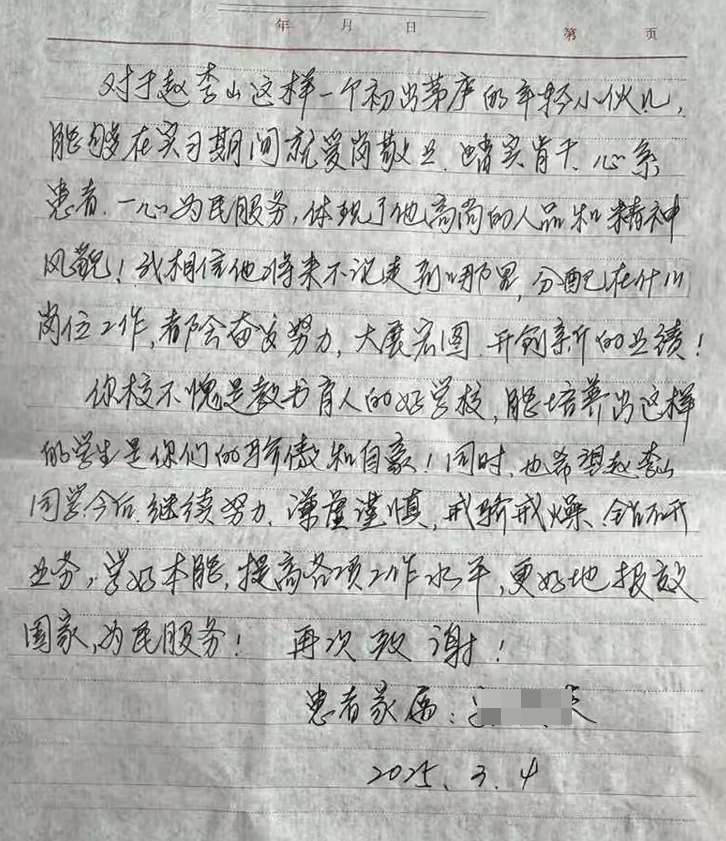 年 月 日 第 页
对于赵李山这样一个初出茅庐的年轻小伙儿,
能够在实习期间就爱岗敬业、踏实肯干、心系
患者、一心为民服务,体现了他高尚的人品和精神
风貌!我相信他将来不论走到哪里,分配在什么
岗位工作,都会奋发努力,大展宏图、开创新的业绩!
你校不愧是教书育人的好学校,能培养出这样
的学生是你们的骄傲和自豪!同时,也希望赵李山
同学今后继续努力、谦虚谨慎,戒骄戒燥、
业务,学好本能,提高各项工作水平,更好地报效
国家,为民服务! 再次致谢!
患者家属:
2025.3.4